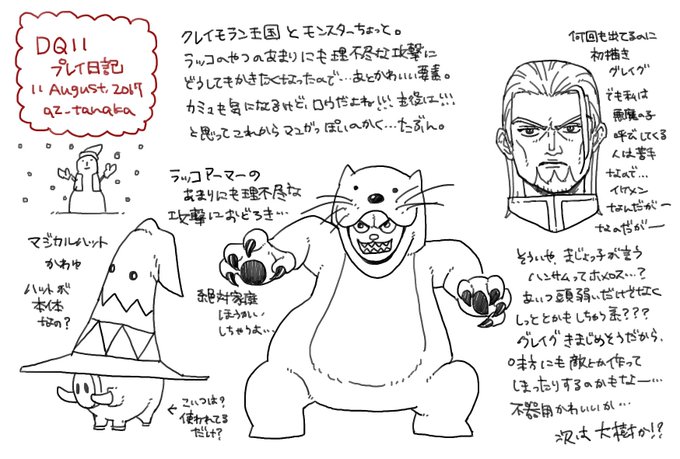 DQ11
プレイ日記
11 August, 2017
az-tanaka
クレイモラン王国とモンスターちょっと。
ラッコのやつのあまりにも理不尽な攻撃に
どうしてもかきたくなったので…あとかわいい要素。
カミュも気になるけど、ロウだよね!!! 主役は!!!
と思ってこれからマンガっぽいのかく…たぶん。
ラッコアーマーの
あまりにも理不尽な
攻撃におどろき…
絶対家庭
ほうかい
しちゃうよ…
マジカルハット
かわゆ
ハットが
本体
なの?
←こいつは?
使われてる
だけ?
何回も出てるのに
初描き
グレイグ
でも私は
悪魔の子
呼びしてくる
人は苦手
なので…
イケメン
なんだがー
なんだがー
そういや、まじょっ子が言う
ハンサムってホメロス…?
あいつ頭弱いだけじゃなく
しっととかもしちゃう系???
グレイグきまじめそうだから、
味方にも敵とか作って
しまったりするのかもなー…
不器用かわいいか…
次は大樹か!?